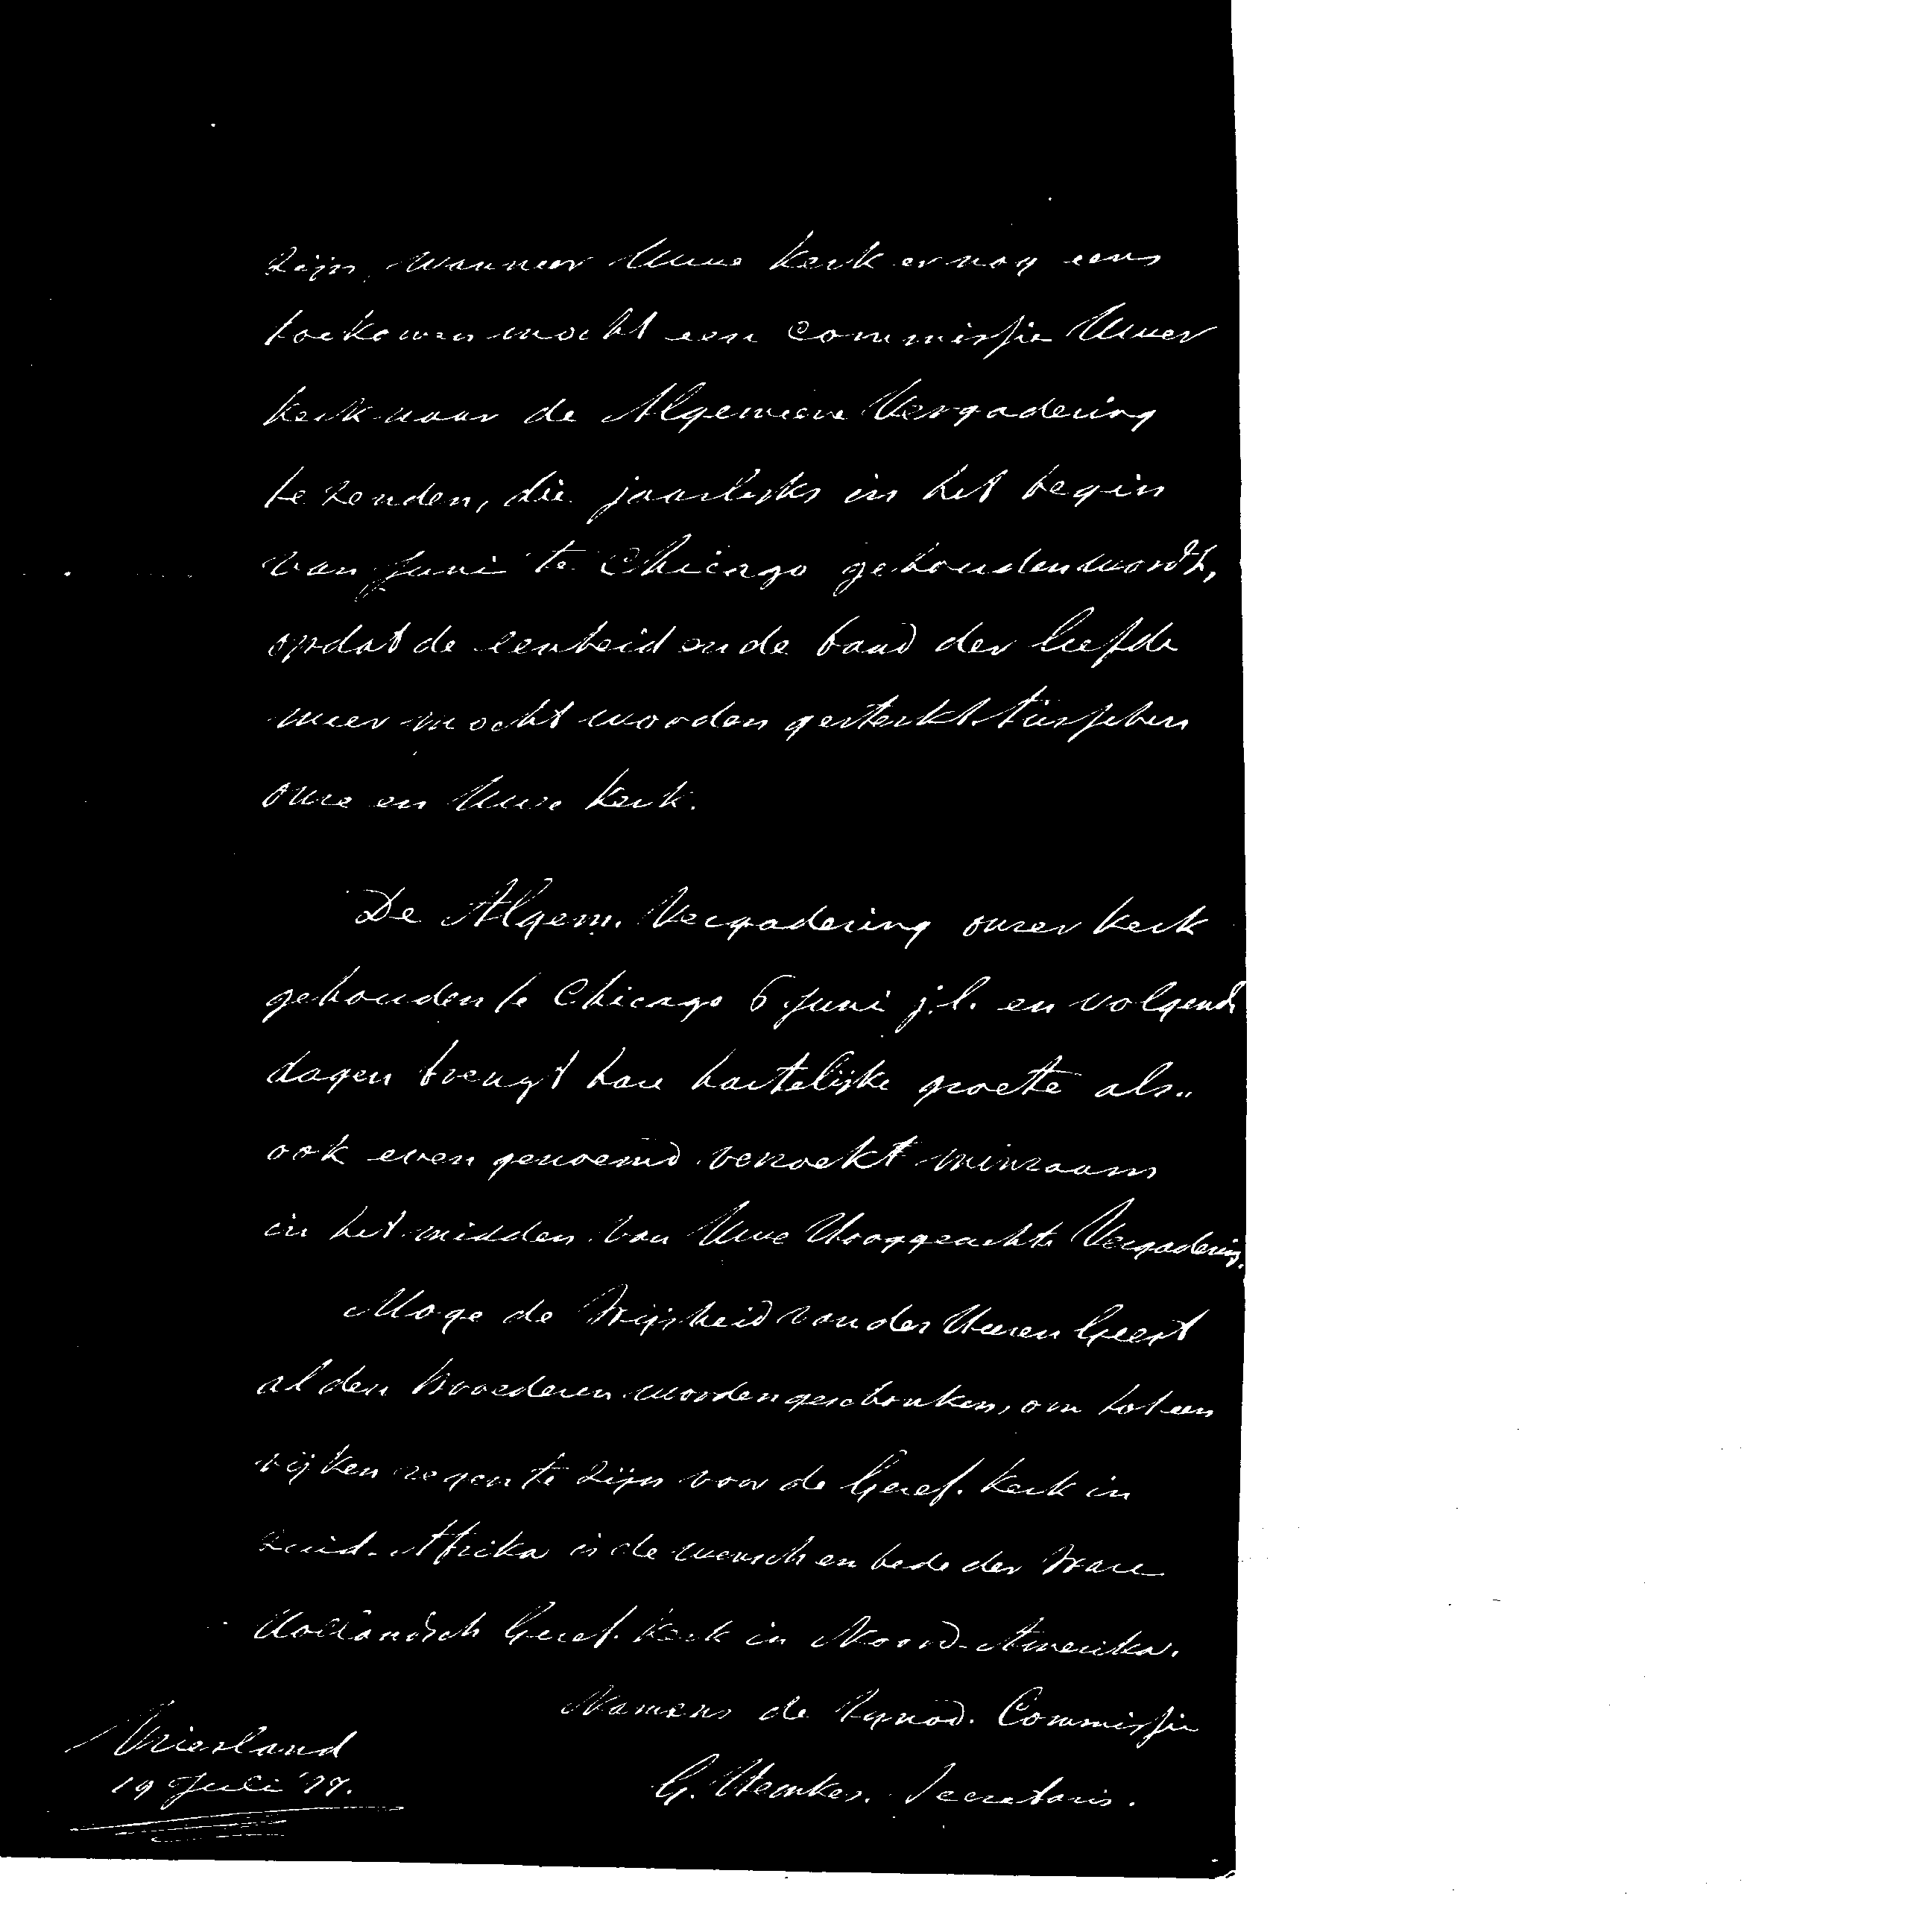 zijn, wanneer Uwe kerk er nog eens
toekomen mocht een Commissie Uwer
kerk naar de Algemeene Vergadering
te zenden, die jaarlijks in het begin
van Juni te Chicago gehouden wordt,
opdat de eenheid en de band der liefde
meer mocht worden gesterkt tusschen
onze en Uwe kerk.
De Algem. Vergadering onzer kerk
gehouden te Chicago 6 Juni j.l. en volgende
dagen brengt hare hartelijke groete als
ook even genoemd verzoekt minzaam
in het midden van Uwe Hooggeachte Vergadering.
Moge de Wijsheid van des Heeren Geest
al den Broederen worden geschonken, om tot een
rijken zegen te zijn voor de Geref. kerk in
Zuid-Afrika is de wensch en bede der Ware
Hollandsch Geref. Kerk in Noord-Amerika.
Namens de Synod. Commissie
Vriesland
19 Juli
G. Hemkes. Secretaris.